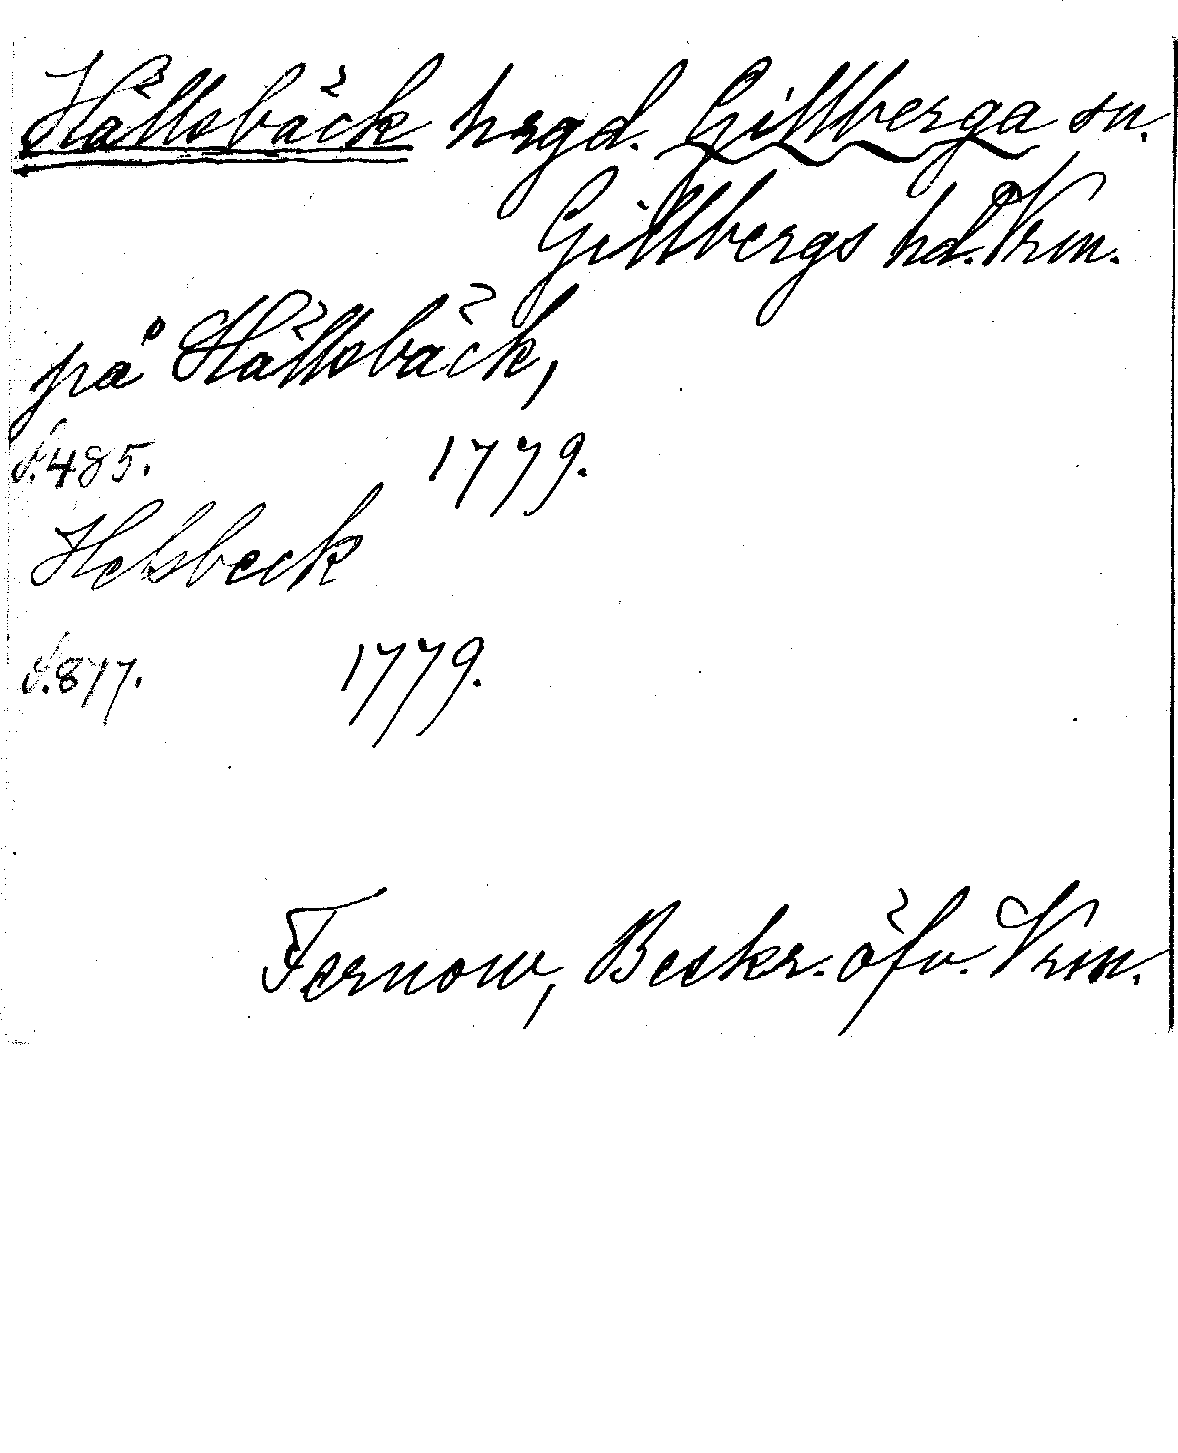 Hällsbäck hrgd. Gillberga sn.
Gillbergs hd. Vrm.
på Hällsbäck,
s. 485. 1779.
Helsbeck
s. 877. 1779.
Fernow, Beskr. öfv. Vrm.